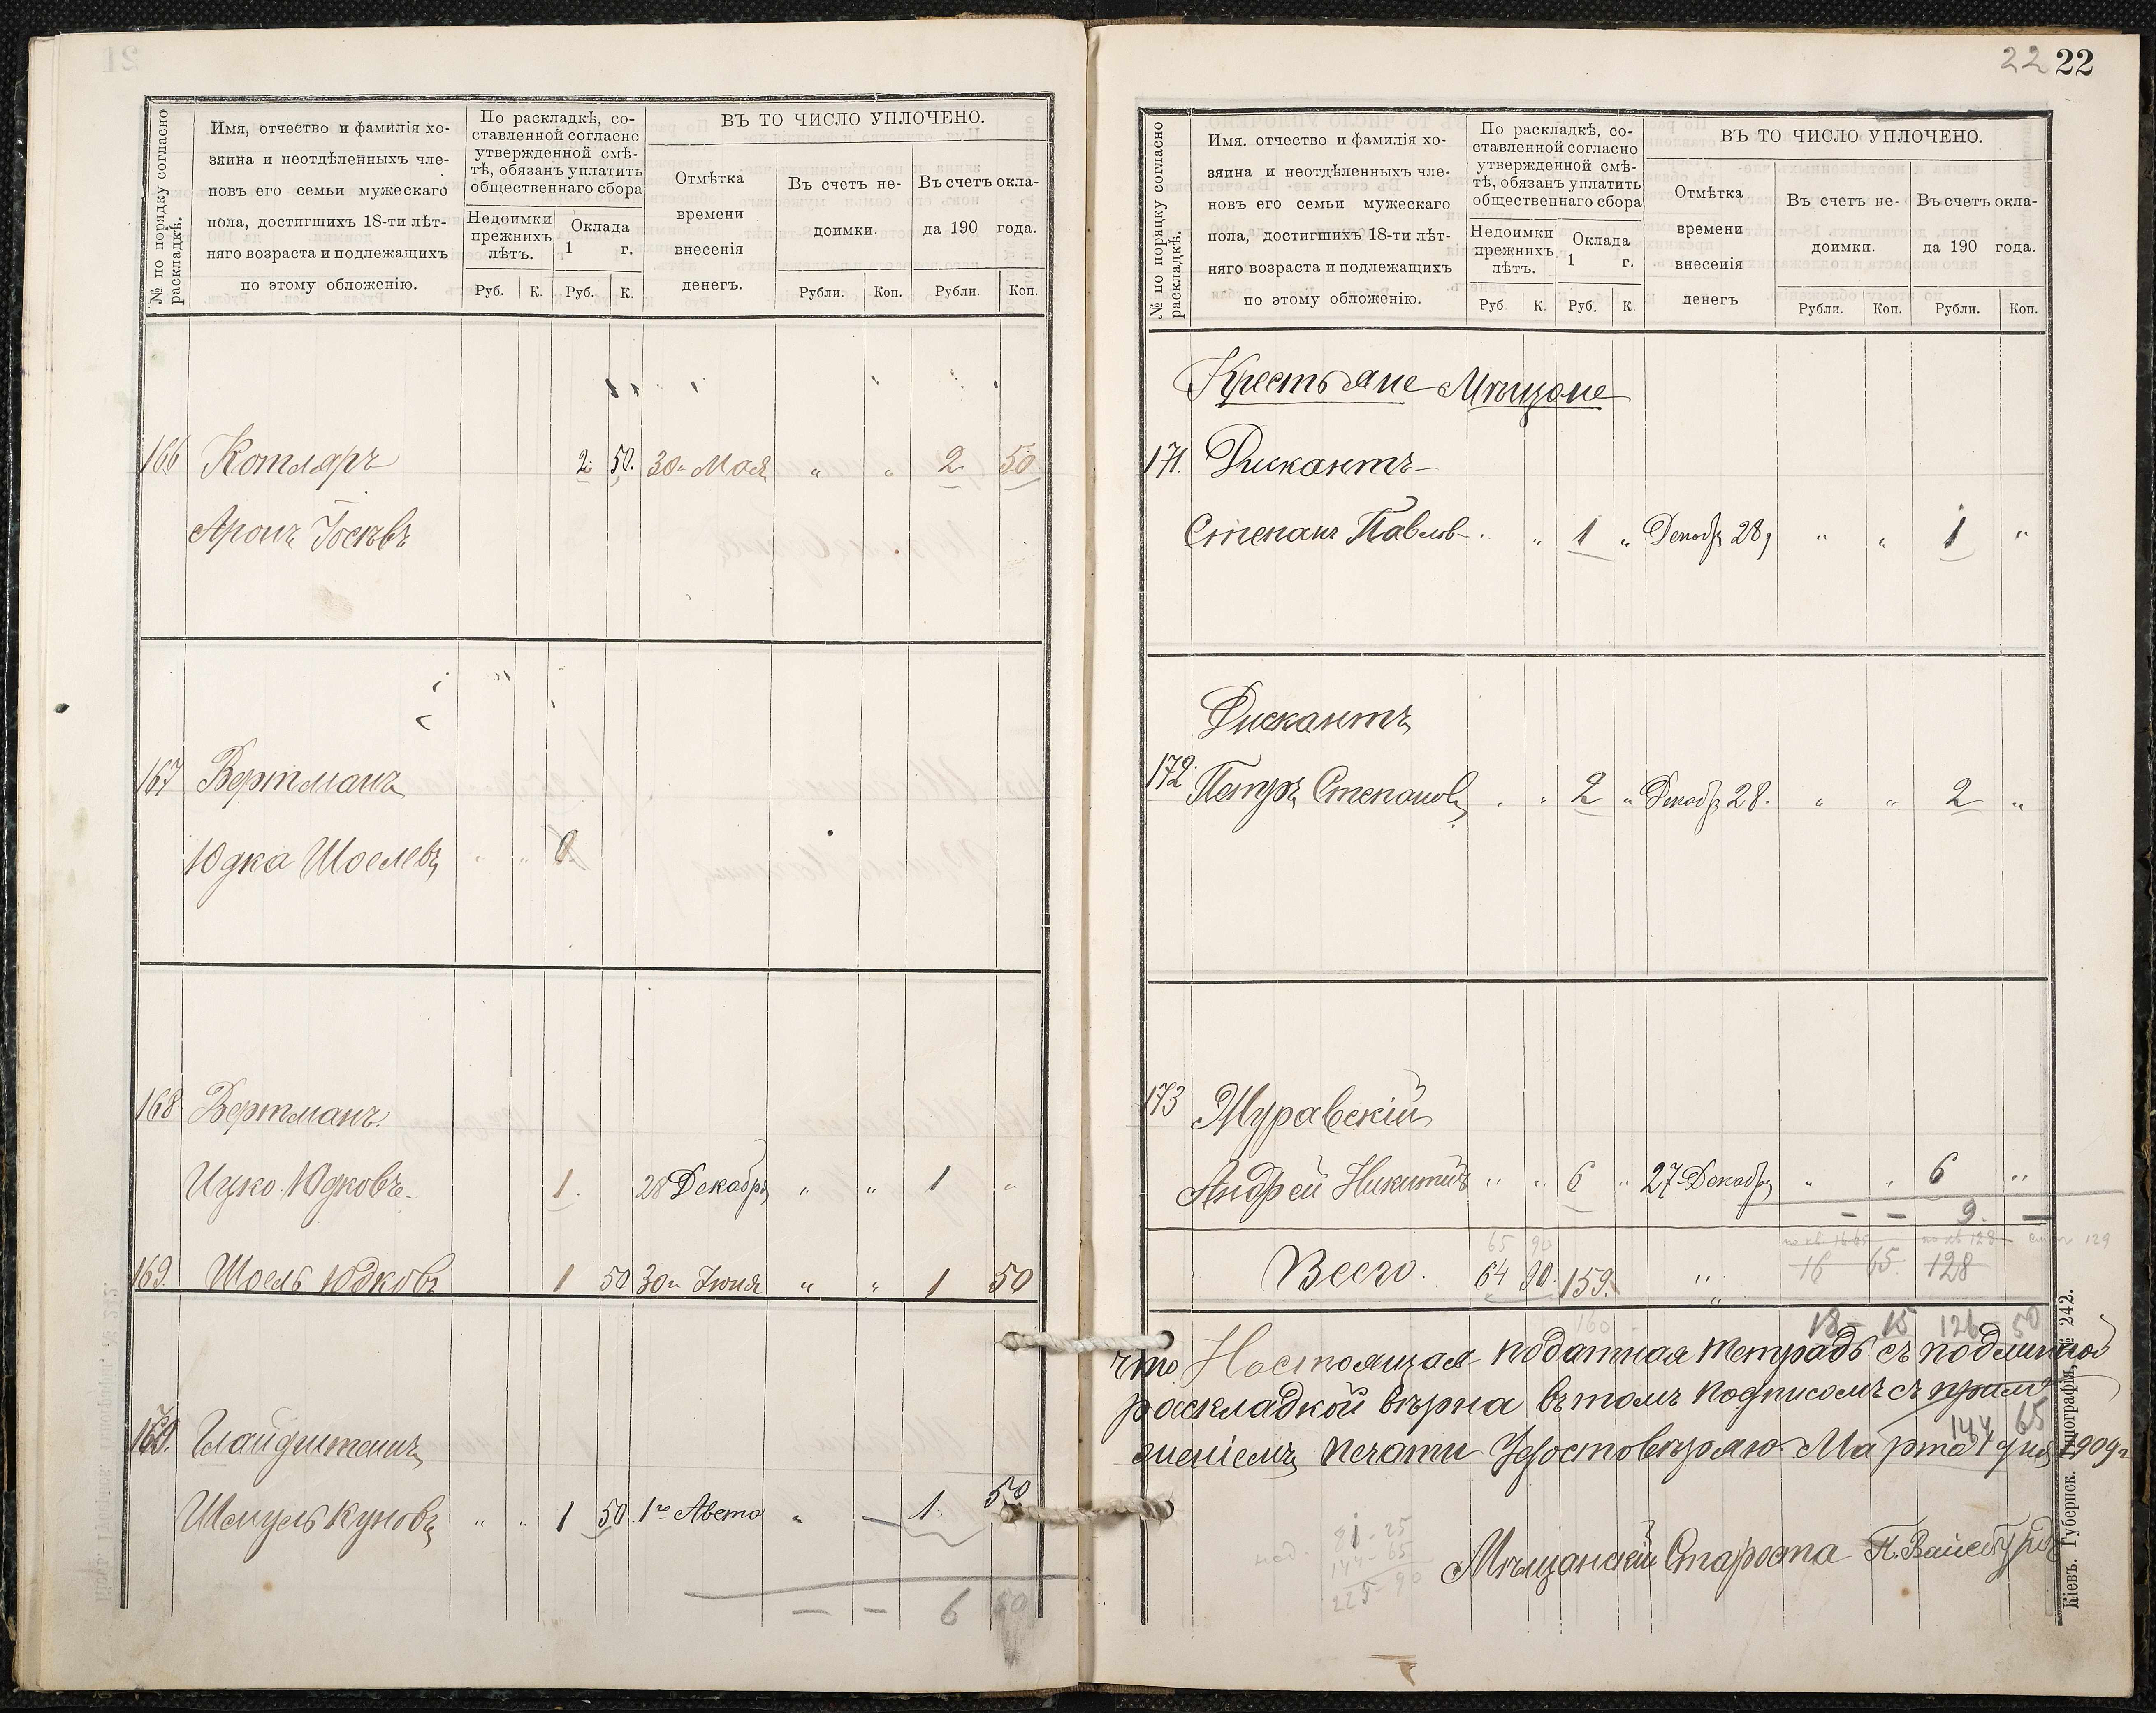 № по порядку согласно раскладкѣ.
Имя, отчество и фамилія хо-
зяина и неотдѣленныхъ чле-
новъ его семьи мужескаго
пола, достигшихъ 18-ти лѣт-
няго возраста и подлежащихъ
по этому обложенію.
По раскладкѣ, со-
ставленной согласно
утвержденной смѣ-
тѣ, обязанъ уплатить
общественнаго сбора
Недоимки
прежнихъ
лѣтъ.
Оклада
1 г.
Руб. К. Руб. К.
ВЪ ТО ЧИСЛО УПЛОЧЕНО.
Отмѣтка
времени
внесенія
денегъ.
Въ счетъ не-
доимки.
Въ счетъ окла-
да 190 года.
Рубли. Коп. Рубли. Коп.
166 Котляръ 2 50. 30го Мая " " 2 50
Аронъ Іосевъ
167 Вертманъ
Юдка Шоелевъ " " 0
168 Вертманъ
Ицко Юдковъ 1. 28 Декабря " " 1 "
169. Шоель Юдковъ 1 50 30го Іюня " " 1 50
170. Глайдштейнъ
Шмуль Куновъ " " 1 50. 1го Авста " — 1. 50
— — 6 50
22 22
№ по порядку согласно раскладкѣ.
Имя. отчество и фамилія хо-
зяина и неотдѣленныхъ чле-
новъ его семьи мужескаго
пола, достигшихъ 18-ти лѣт-
няго возраста и подлежащихъ
по этому обложенію.
По раскладкѣ, со-
ставленной согласно
утвержденной смѣ-
тѣ, обязанъ уплатить
общественнаго сбора
Недоимки
прежнихъ
лѣтъ.
Оклада
1 г.
Руб. К. Руб. К.
ВЪ ТО ЧИСЛО УПЛОЧЕНО.
Отмѣтка
времени
внесенія
денегъ
Въ счетъ не-
доимки.
Въ счетъ окла-
да 190 года.
Рубли. Коп. Рубли. Коп.
Крестьяне Мѣщане
171. Дискантъ
Степанъ Павлов " " 1 " Декабр 28 " " 1 "
Дискантъ
172. Петръ Степановъ " " 2 " Декабр 28. " " 2 "
173 Журавскій
Андрей Никитинъ " " 6 " 27 Декабр " " 6 "
— — 9. —
65 90
Всего. 64 90. 159. " 16 65 128
160
18 - 15 126 50
что Настоящая податная тетрадь съ подлинной
раскладкой вѣрна въ томъ подписомъ съ прило
женіемъ печати Удостовѣряю. Марта 1 дня 1909 г
144 65
81 - 25
144 - 65
225 90
Мѣщанскій Староста П. Вайсбурдъ
Кіевъ. Губернск. Типографія, № 242.